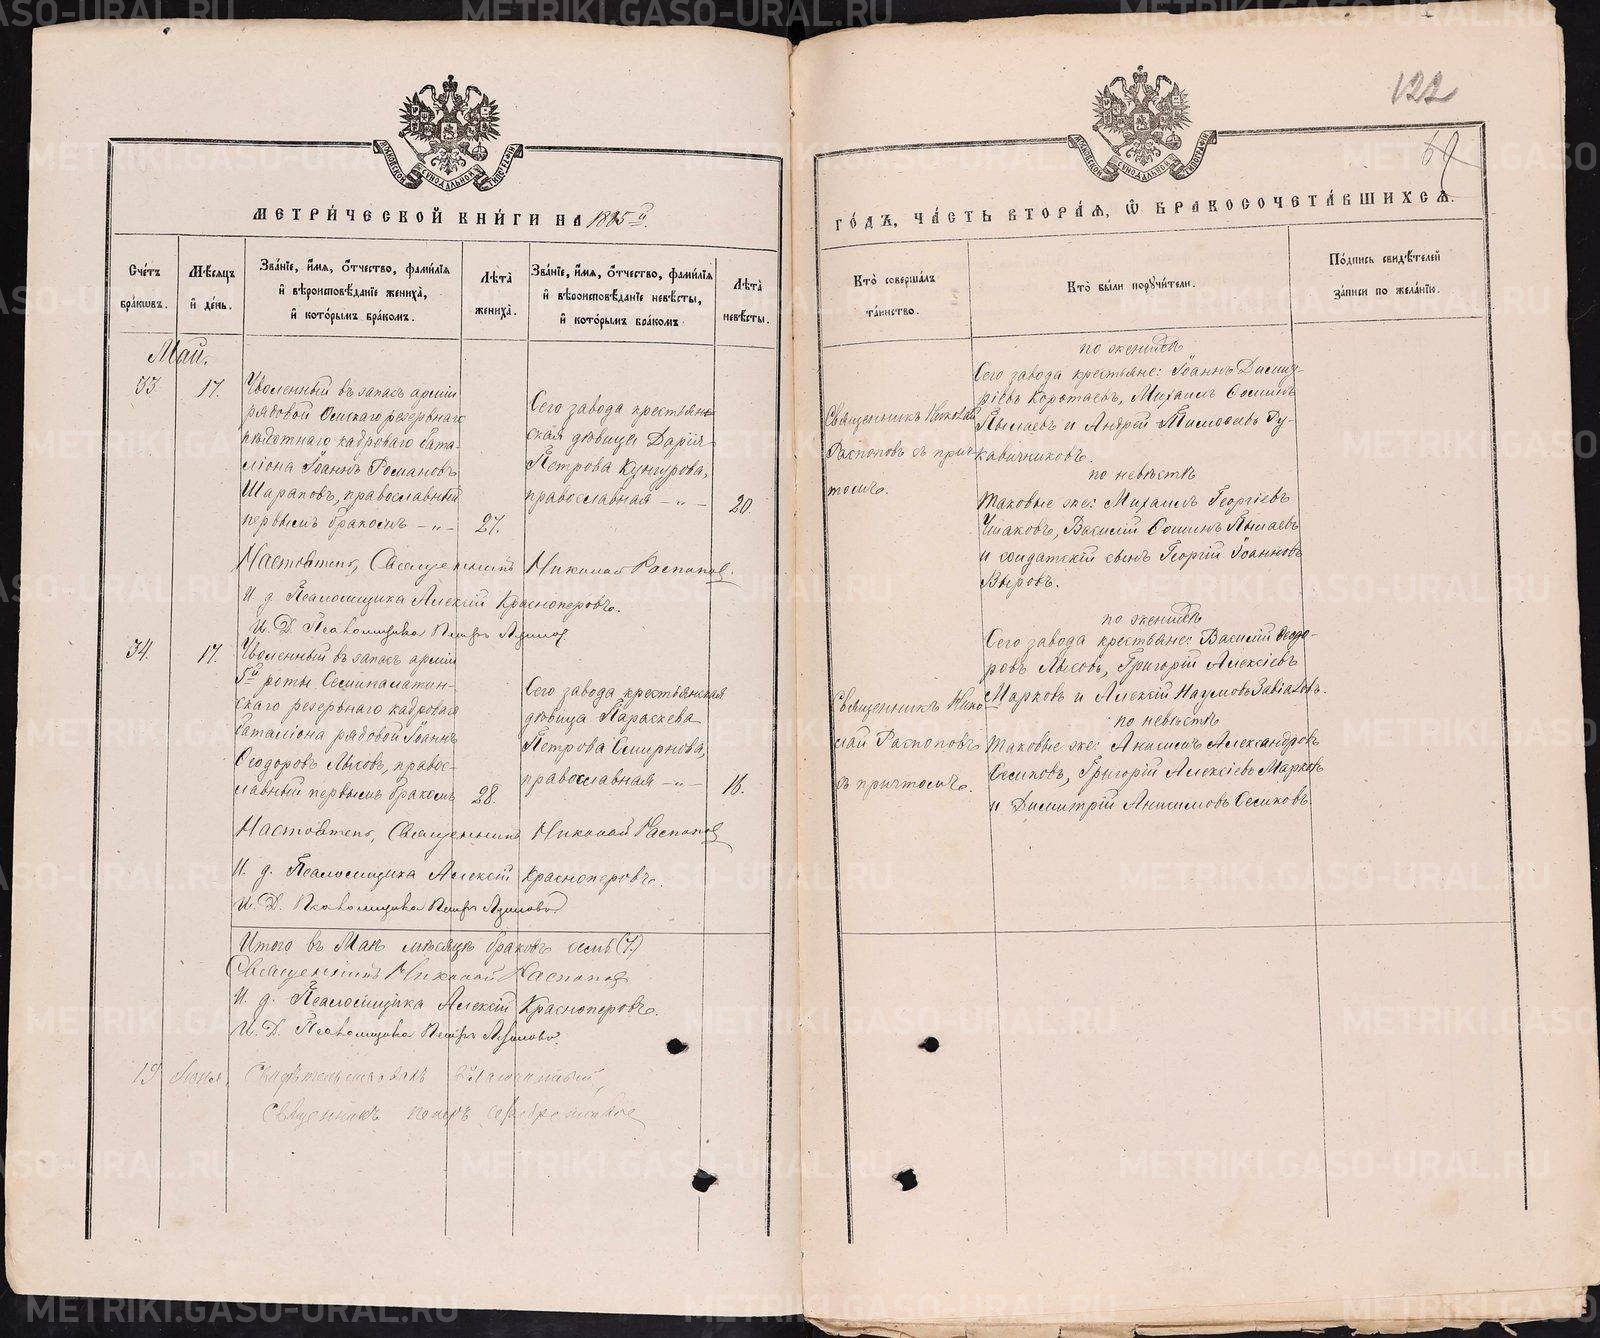 122
69
МОСКОВСКОЙ СѴНОДАЛЬНОЙ ТИПОГРАФІИ
МОСКОВСКОЙ СѴНОДАЛЬНОЙ ТИПОГРАФІИ
МЕТРИ́ЧЕСКОЙ КНИ́ГИ НА 1885й
ГО́ДЪ, ЧА́СТЬ ВТОРА́Я, Ѽ БРАКОСОЧЕТА́ВШИХСЯ.
Сче́тъ бра́ковъ.
Мѣ́сяцъ и́ де́нь.
Зва́нїе, и́мя, о́тчество, фами́лїя и́ вѣроисповѣ́данїе жениха̀, и́ кото́рымъ бра́комъ.
Лѣта̀ жениха̀.
Зва́нїе, и́мя, о́тчество, фами́лїя и́ вѣроисповѣ́данїе невѣ́сты, и́ кото́рымъ бра́комъ
Лѣта̀ невѣ́сты.
Кто̀ соверша́лъ та́инство.
Кто̀ бы́ли поручи́тели.
По́дпись свидѣ́телей за́писи по жела́нїю.
Май.
33.
17.
Уволенный въ запасъ арміи
рядовой Омскаго резервнаго
пѣхотнаго кадроваго бата-
ліона Іоаннъ Романовъ
Шараповъ, православный
первымъ бракомъ – „ –
27.
Сего завода крестьян-
ская дѣвица Дарія
Петрова Кунгурова,
православная – „ –
20.
Священникъ Николай
Распоповъ съ прич-
томъ.
по женихѣ
Сего завода крестьяне: Іоаннъ Димит-
ріевъ Коротаевъ, Михаилъ Ѳоминъ
Пылаевъ и Андрей Тимоѳеевъ Ру-
кавичниковъ.
по невѣстѣ
таковые же: Михаилъ Георгіевъ
Ушаковъ, Василій Ѳоминъ Пылаевъ
и солдатскій сынъ Георгій Іоанновъ
Выровъ.
Священникъ Николай Распопов.
И. д. Псаломщика Алексій Красноперовъ.
И. Д. Псаломщика Петръ
34.
17.
Уволенный въ запасъ арміи
5й роты Семипалатин-
скаго резервнаго кадроваго
баталіона рядовой Іоаннъ
Ѳеодоровъ Лысовъ, право-
славный первымъ бракомъ
28.
Сего завода крестьянская
дѣвица Параскева
Петрова Смирнова,
православная – „ –
18.
Священникъ Нико-
лай Распоповъ
съ причтомъ.
по женихѣ
Сего завода крестьяне: Василій Ѳеодо-
ровъ Лысовъ, Григорій Алексіевъ
Марковъ и Алексій Наумовъ Завьяловъ.
по невѣстѣ
таковые же: Анисимъ Александровъ
Сесиковъ, Григорій Алексіевъ Марковъ
и Димитрій Анисимовъ Сесиковъ.
Священникъ Николай Распопов
И. д. Псаломщика Алексій Красноперовъ.
И. Д. Псаломщика Петръ
Итого въ Маѣ мѣсяцѣ браковъ семь (7.)
Священникъ Николай Распопов
И. д. Псаломщика Алексій Красноперовъ.
И. Д. Псаломщика Петръ
19 Июня, Свидѣтельствовалъ Благочинный,
Священникъ Петръ
METRIKI.GASO-URAL.RU